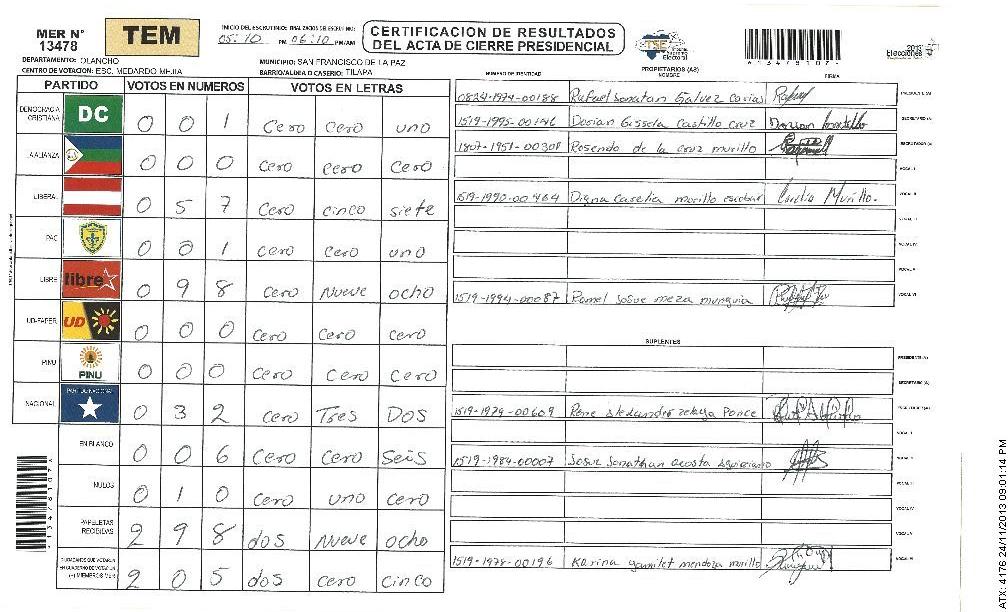 MER N° 13478
TEM
INICIO DEL ESCRUTINIO: FINALIZACION DEL ESCRUTINIO:
05:10 PM 06:10 PM/AM
CERTIFICACION DE RESULTADOS
DEL ACTA DE CIERRE PRESIDENCIAL
TSE Tribunal Supremo Electoral
13478107
2013 Elecciones
DEPARTAMENTO: OLANCHO
MUNICIPIO: SAN FRANCISCO DE LA PAZ
CENTRO DE VOTACION: ESC. MEDARDO MEJIA
BARRIO/ALDEA O CASERIO: TILAPA
PARTIDO VOTOS EN NUMEROS VOTOS EN LETRAS
DEMOCRACIA CRISTIANA DC 0 0 1 Cero Cero uno
ALIANZA 0 0 0 Cero Cero Cero
LIBERAL 0 5 7 Cero cinco siete
PAC 0 0 1 Cero Cero uno
LIBRE libre 0 9 8 Cero Nueve ocho
UD-FAPER UD 0 0 0 Cero Cero Cero
PINU PINU 0 0 0 Cero Cero Cero
NACIONAL PARTIDO NACIONAL 0 3 2 Cero Tres Dos
EN BLANCO 0 0 6 Cero Cero Seis
NULOS 0 1 0 Cero uno Cero
PAPELETAS RECIBIDAS 2 9 8 dos Nueve ocho
CIUDADANOS QUE VOTARON EN CUADERNO DE VOTACION (+) MIEMBROS MER 2 0 5 dos cero cinco
NUMERO DE IDENTIDAD PROPIETARIOS (AS) NOMBRE FIRMA
0824-1974-00188 Rafael Jonatan Galvez Carias PRESIDENTE (A)
1519-1995-00146 Dorian Gissela Castillo Cruz SECRETARIO (A)
1807-1951-00308 Rosendo de la cruz murillo ESCRUTADOR (A)
VOCAL I
1519-1990-00464 Digna Carelia murillo escobar Carelia Murillo. VOCAL II
VOCAL III
VOCAL IV
VOCAL V
1519-1994-00087 Romel Josue meza munguia VOCAL VI
SUPLENTES
PRESIDENTE (A)
SECRETARIO (A)
1519-1979-00609 Rene Alexander zelaya Ponce ESCRUTADOR (A)
VOCAL I
1519-1984-00007 Josue Jonathan acosta VOCAL II
VOCAL III
VOCAL IV
VOCAL V
1519-1978-00196 Karina yamilet mendoza murillo VOCAL VI
13478107
ATX: 4176 24/11/2013 09:01:14 PM